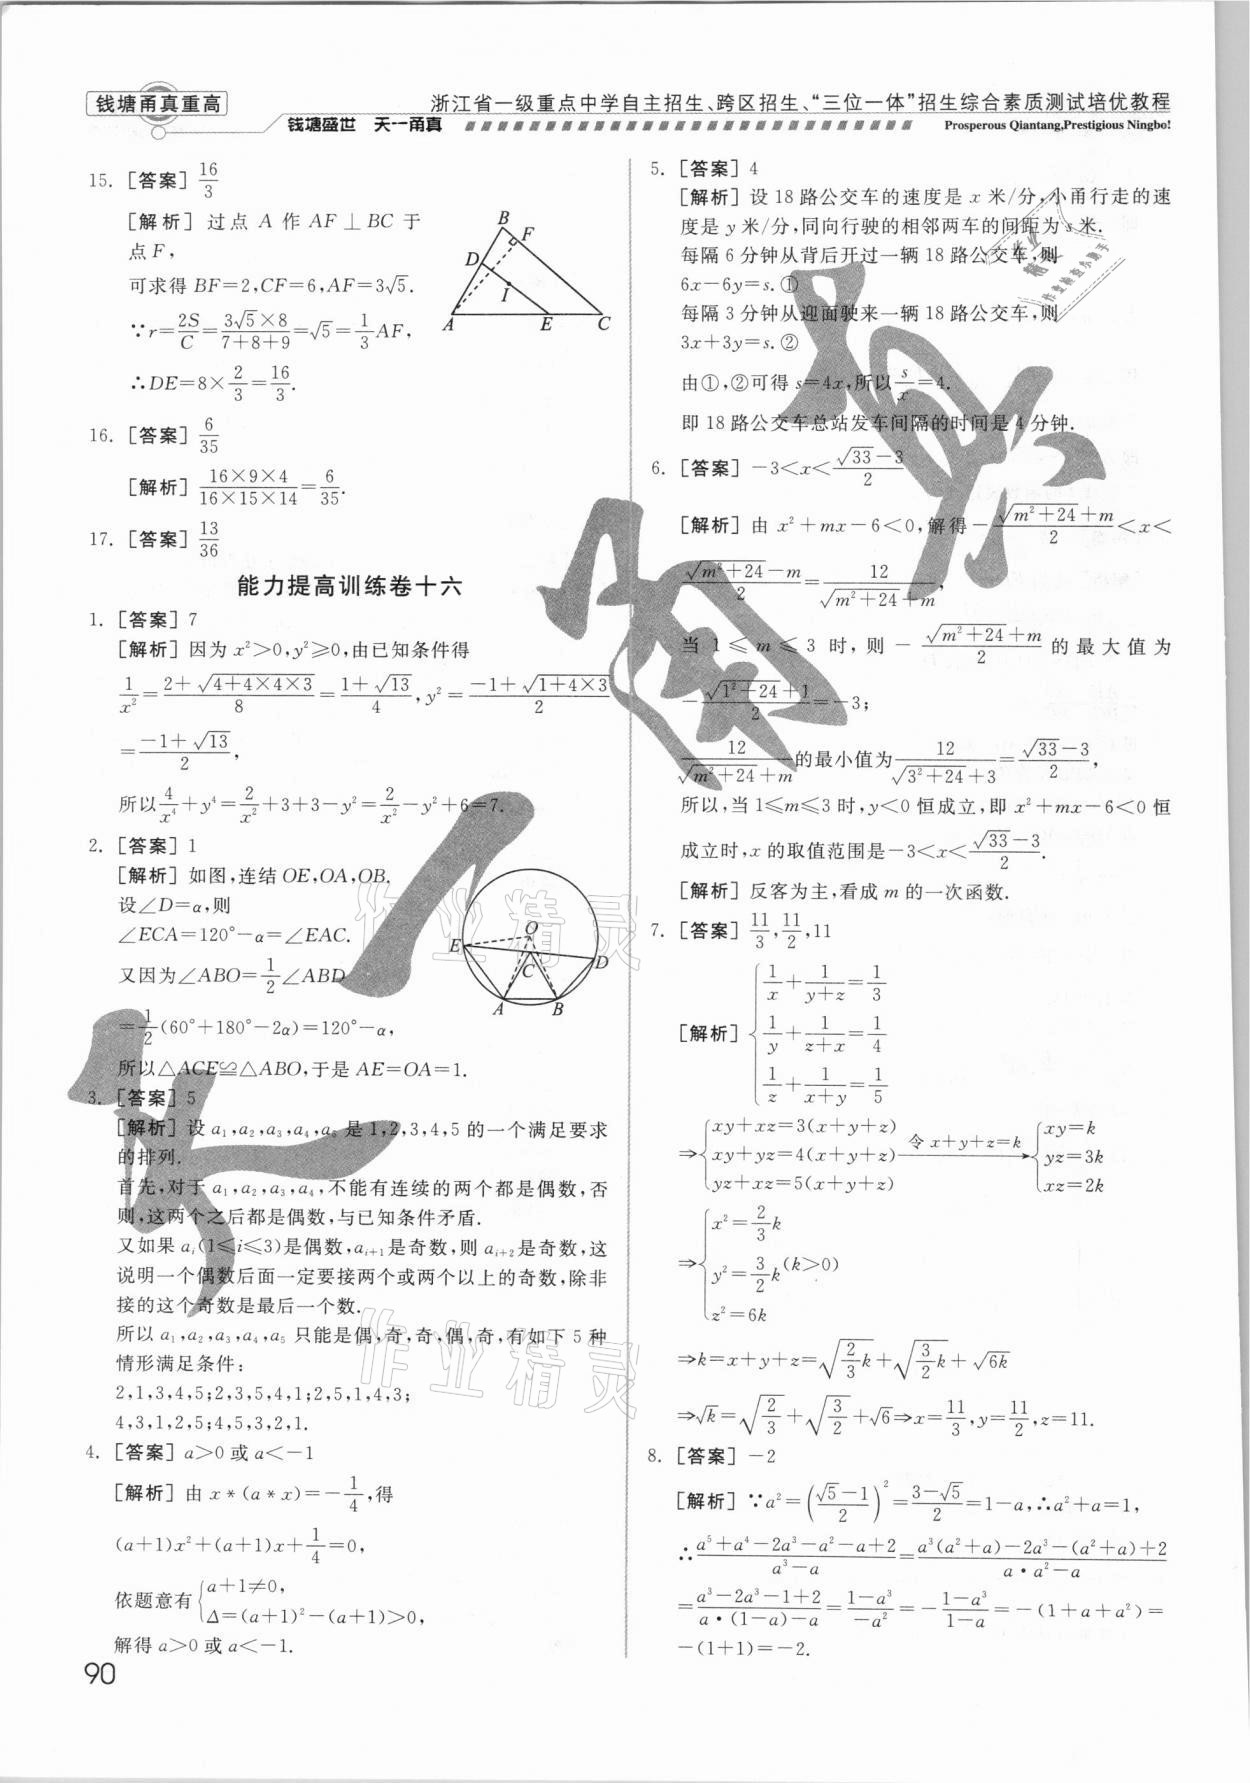 钱塘甬真重高
浙江省一级重点中学自主招生、跨区招生、“三位一体”招生综合素质测试培优教程
钱塘盛世 天一甬真
Prosperous Qiantang,Prestigious Ningbo!
15. [答案] 16/3
[解析] 过点 A 作 AF⊥BC 于
点 F,
可求得 BF=2,CF=6,AF=3√5.
∵r=2S/C=(3√5×8)/(7+8+9)=√5=1/3 AF,
∴DE=8×2/3=16/3.
B
F
D
I
A
E
C
16. [答案] 6/35
[解析] (16×9×4)/(16×15×14)=6/35.
17. [答案] 13/36
能力提高训练卷十六
1. [答案] 7
[解析] 因为 x²>0,y²≥0,由已知条件得
1/x²=(2+√(4+4×4×3))/8=(1+√13)/4,y²=(-1+√(1+4×3))/2
=(-1+√13)/2,
所以 4/x⁴+y⁴=2/x²+3+3-y²=2/x²-y²+6=7.
2. [答案] 1
[解析] 如图,连结 OE,OA,OB.
设∠D=α,则
∠ECA=120°-α=∠EAC.
又因为∠ABO=1/2∠ABD
=1/2(60°+180°-2α)=120°-α,
所以△ACE≌△ABO,于是 AE=OA=1.
O
E
C
D
A
B
3. [答案] 5
[解析] 设 a₁,a₂,a₃,a₄,a₅ 是 1,2,3,4,5 的一个满足要求
的排列.
首先,对于 a₁,a₂,a₃,a₄,不能有连续的两个都是偶数,否
则,这两个之后都是偶数,与已知条件矛盾.
又如果 aᵢ(1≤i≤3)是偶数,aᵢ₊₁是奇数,则 aᵢ₊₂是奇数,这
说明一个偶数后面一定要接两个或两个以上的奇数,除非
接的这个奇数是最后一个数.
所以 a₁,a₂,a₃,a₄,a₅ 只能是偶,奇,奇,偶,奇,有如下 5 种
情形满足条件:
2,1,3,4,5;2,3,5,4,1;2,5,1,4,3;
4,3,1,2,5;4,5,3,2,1.
4. [答案] a>0 或 a<-1
[解析] 由 x*(a*x)=-1/4,得
(a+1)x²+(a+1)x+1/4=0,
依题意有{a+1≠0,
Δ=(a+1)²-(a+1)>0,
解得 a>0 或 a<-1.
90
5. [答案] 4
[解析] 设 18 路公交车的速度是 x 米/分,小甬行走的速
度是 y 米/分,同向行驶的相邻两车的间距为 s 米.
每隔 6 分钟从背后开过一辆 18 路公交车,则
6x-6y=s. ①
每隔 3 分钟从迎面驶来一辆 18 路公交车,则
3x+3y=s. ②
由①,②可得 s=4x,所以 s/x=4.
即 18 路公交车总站发车间隔的时间是 4 分钟.
6. [答案] -3<x<(√33-3)/2
[解析] 由 x²+mx-6<0,解得-(√(m²+24)+m)/2<x<
(√(m²+24)-m)/2=12/(√(m²+24)+m),
当 1≤m≤3 时,则 -(√(m²+24)+m)/2 的最大值为
-(√(1²+24)+1)/2=-3;
12/(√(m²+24)+m)的最小值为 12/(√(3²+24)+3)=(√33-3)/2,
所以,当 1≤m≤3 时,y<0 恒成立,即 x²+mx-6<0 恒
成立时,x 的取值范围是-3<x<(√33-3)/2.
[解析] 反客为主,看成 m 的一次函数.
7. [答案] 11/3,11/2,11
[解析] {1/x+1/(y+z)=1/3
1/y+1/(z+x)=1/4
1/z+1/(x+y)=1/5
⇒{xy+xz=3(x+y+z)
xy+yz=4(x+y+z)
yz+xz=5(x+y+z)
令 x+y+z=k
{xy=k
yz=3k
xz=2k
⇒{x²=2/3 k
y²=3/2 k
z²=6k
(k>0)
⇒k=x+y+z=√(2/3 k)+√(3/2 k)+√(6k)
⇒√k=√(2/3)+√(3/2)+√6⇒x=11/3,y=11/2,z=11.
8. [答案] -2
[解析] ∵a²=((√5-1)/2)²=(3-√5)/2=1-a,∴a²+a=1,
∴(a⁵+a⁴-2a³-a²-a+2)/(a³-a)=(a³(a²+a)-2a³-(a²+a)+2)/(a·a²-a)
=(a³-2a³-1+2)/(a·(1-a)-a)=(1-a³)/(-a²)=-(1-a³)/(1-a)=-(1+a+a²)=
-(1+1)=-2.
作业精灵
作业精灵